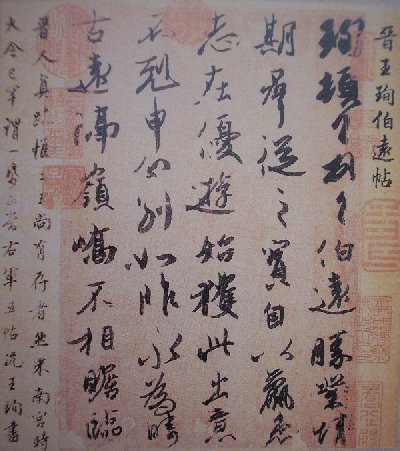 晉王珣伯遠帖
珣頓首頓首伯遠勝業情
期群從之寶自以羸患
志在優遊始獲此出意
不剋申分別如昨永為疇
古遠隔嶺嶠不相瞻臨
晉人真跡惟二王尚有存者然米南宮時
大令已罕謂一紙可當右軍五帖況王珣書